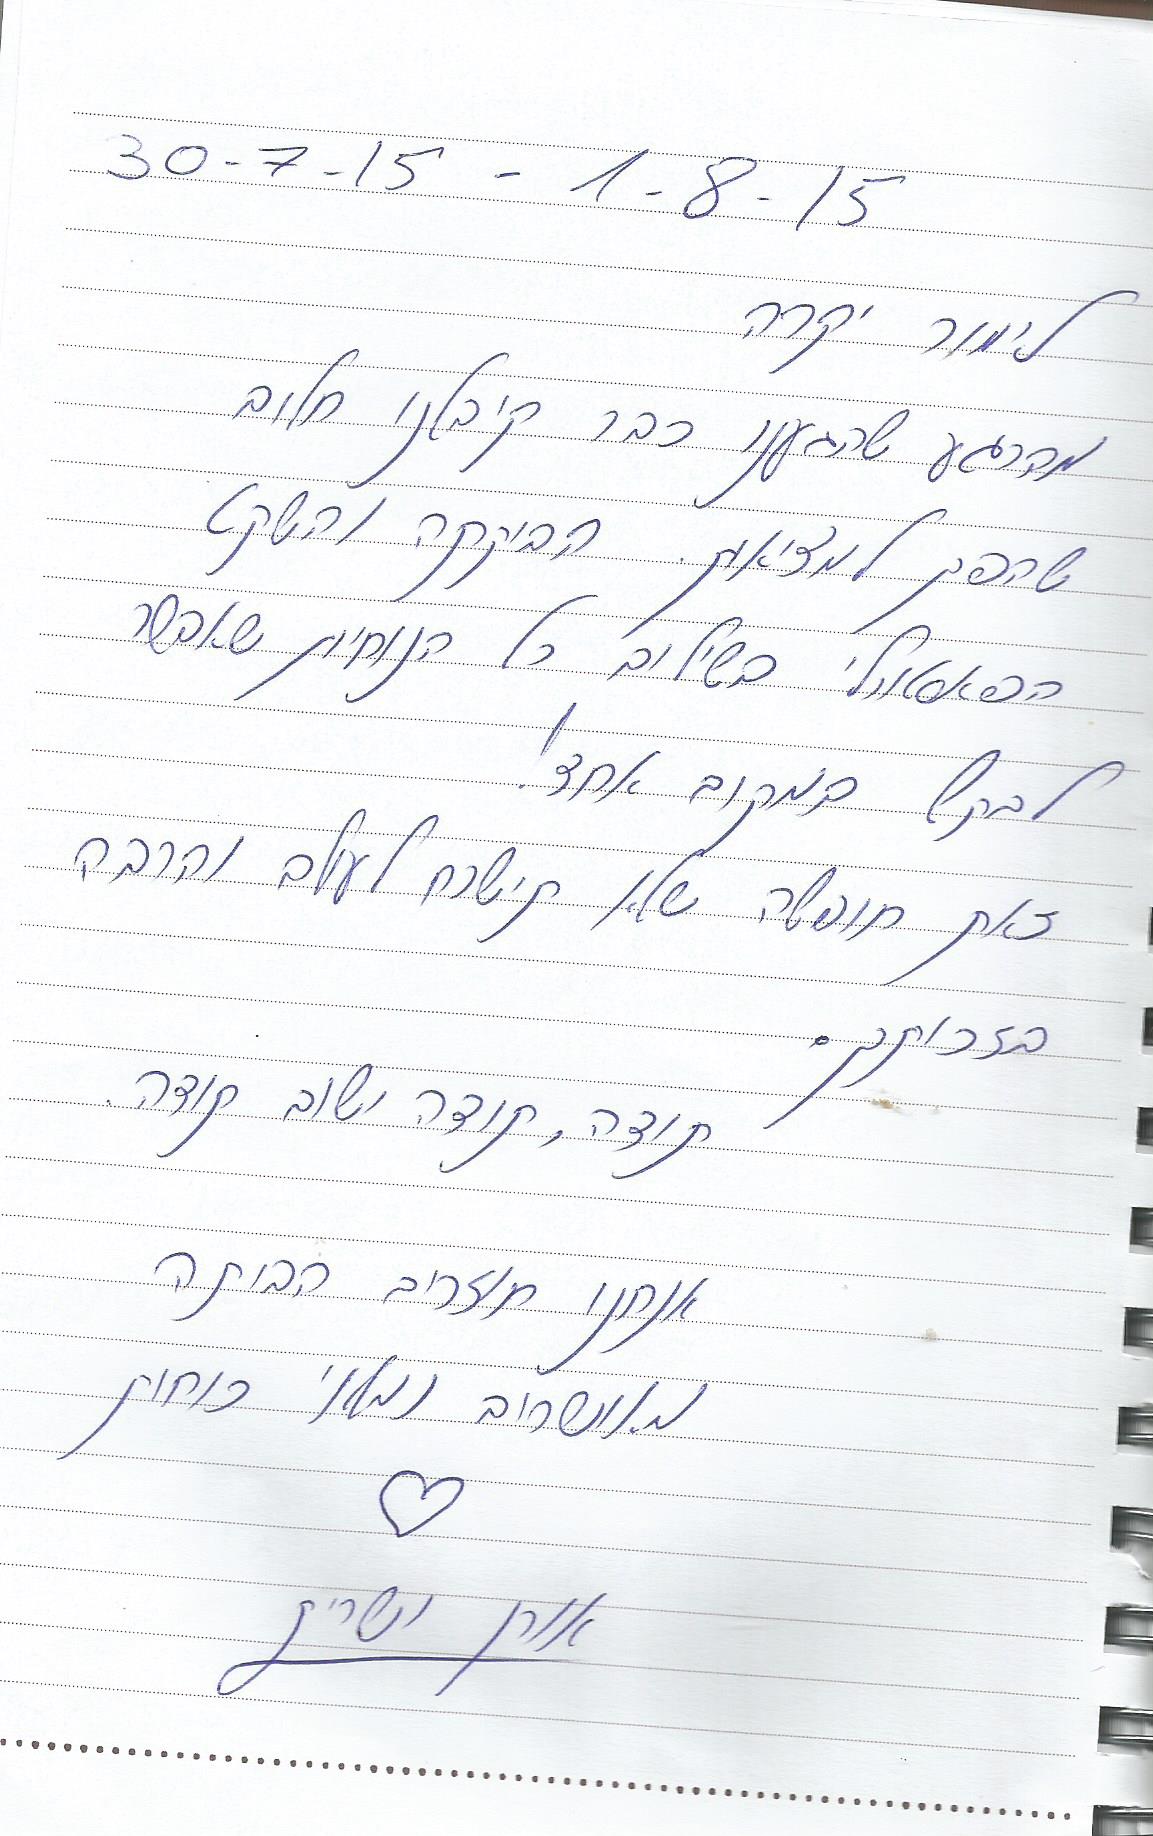 30-7-15 - 1-8-15
לימור יקרה
מהרגע שהגענו כבר קיבלנו חלום
שהפך למציאות. הבקתה והשקט
הפסטורלי בשילוב כל הנוחיות שאפשר
לבקש במקום אחד!
זאת חופשה שלא תישכח לעולם והרבה
בזכותך.
תודה, תודה ושוב תודה.
אנחנו חוזרים הביתה
מאושרים ומלאי כוחות